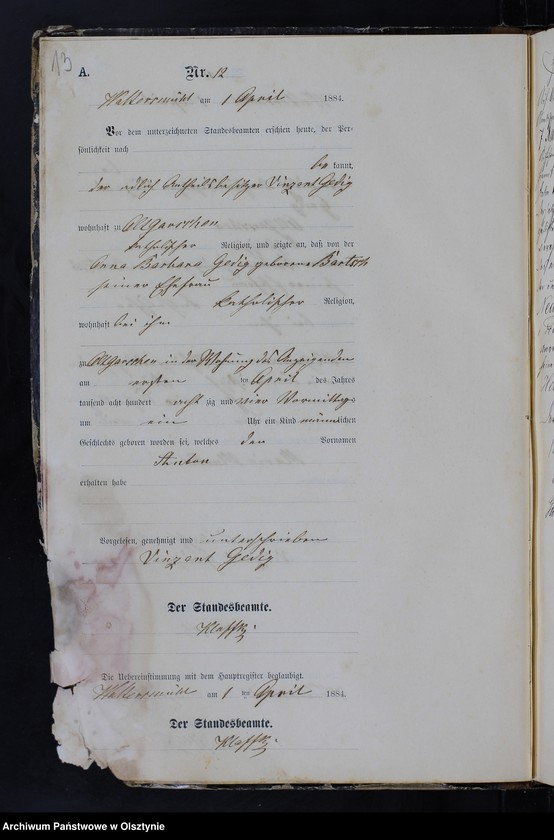 13
A. Nr. 12
Waltersmühl am 1 April 1884.
Vor dem unterzeichneten Standesbeamten erschien heute, der Per-
sönlichkeit nach
be kannt,
der adlich Antheilsbesitzer Vinzent Gedig
wohnhaft zu Altgarschen
katholischer Religion, und zeigte an, daß von der
Anna Barbara Gedig geborene Bartsch
seiner Ehefrau
katholischer Religion,
wohnhaft bei ihm
zu Altgarschen in der Wohnung des Anzeigenden
am ersten im April des Jahres
tausend acht hundert acht zig und vier Vormittags
um ein Uhr ein Kind männlichen
Geschlechts geboren worden sei, welches den Vornamen
Anton
erhalten habe
Vorgelesen, genehmigt und unterschrieben
Vinzent Gedig
Der Standesbeamte.
Klaffki
Die Uebereinstimmung mit dem Hauptregister beglaubigt.
Waltersmühl am 1 ten April 1884.
Der Standesbeamte.
Klaffki
Archiwum Państwowe w Olsztynie